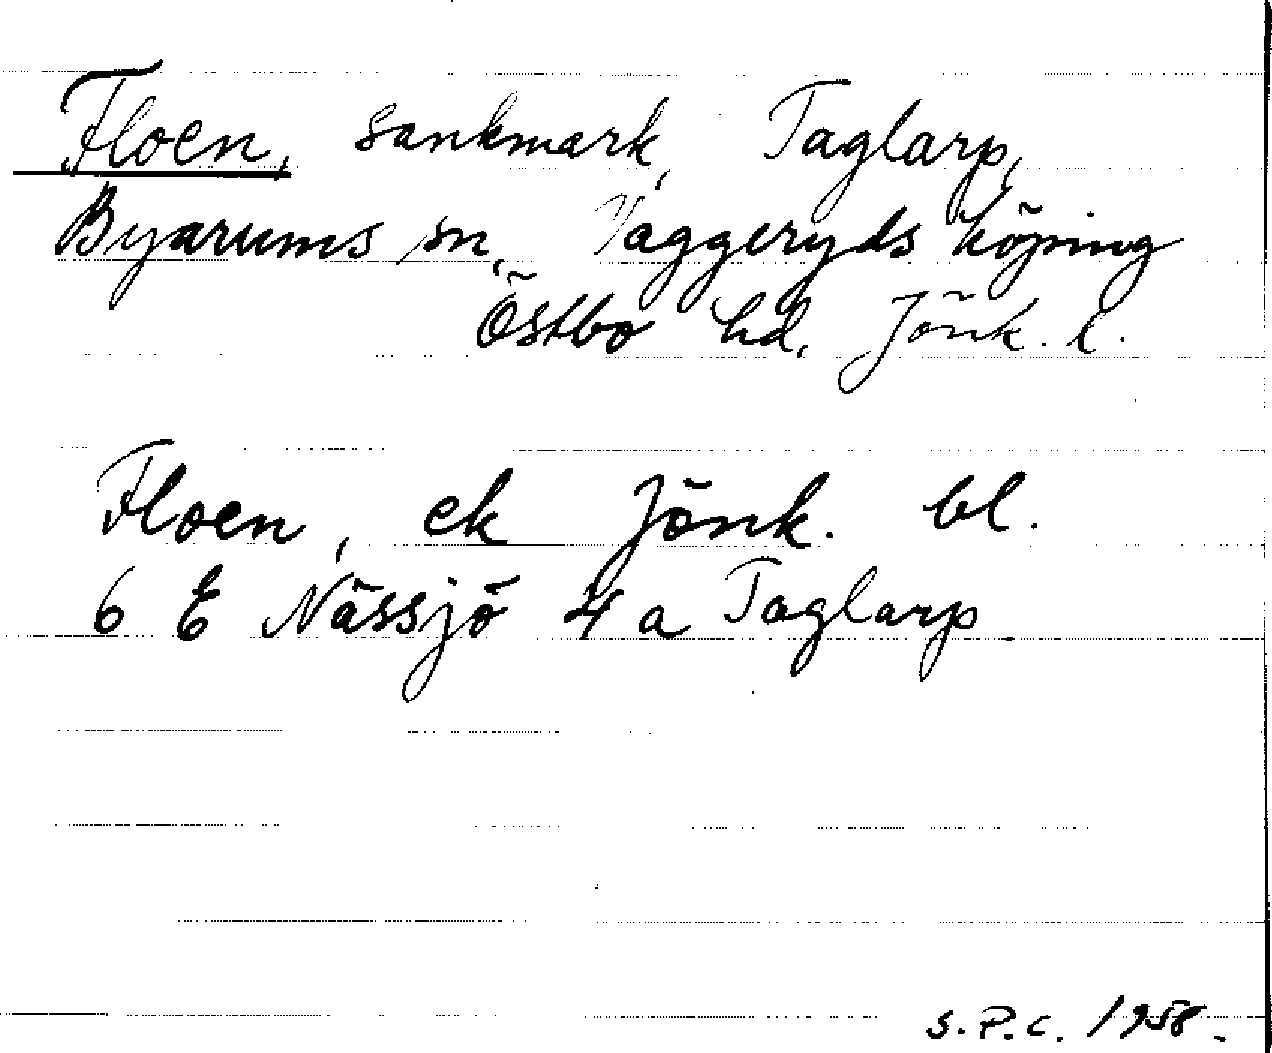 Floen, sankmark, Taglarp,
Byarums sn, Vaggeryds köping
Östbo hd, Jönk. l.
Floen, ek Jönk. bl.
6 E Nässjö 4 a Taglarp
S.P.C. 1958.